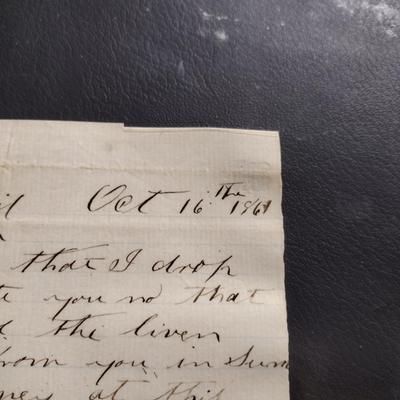 Oct 16 the 1861
that I drop
you no that
the liven
from you in Sum
at this